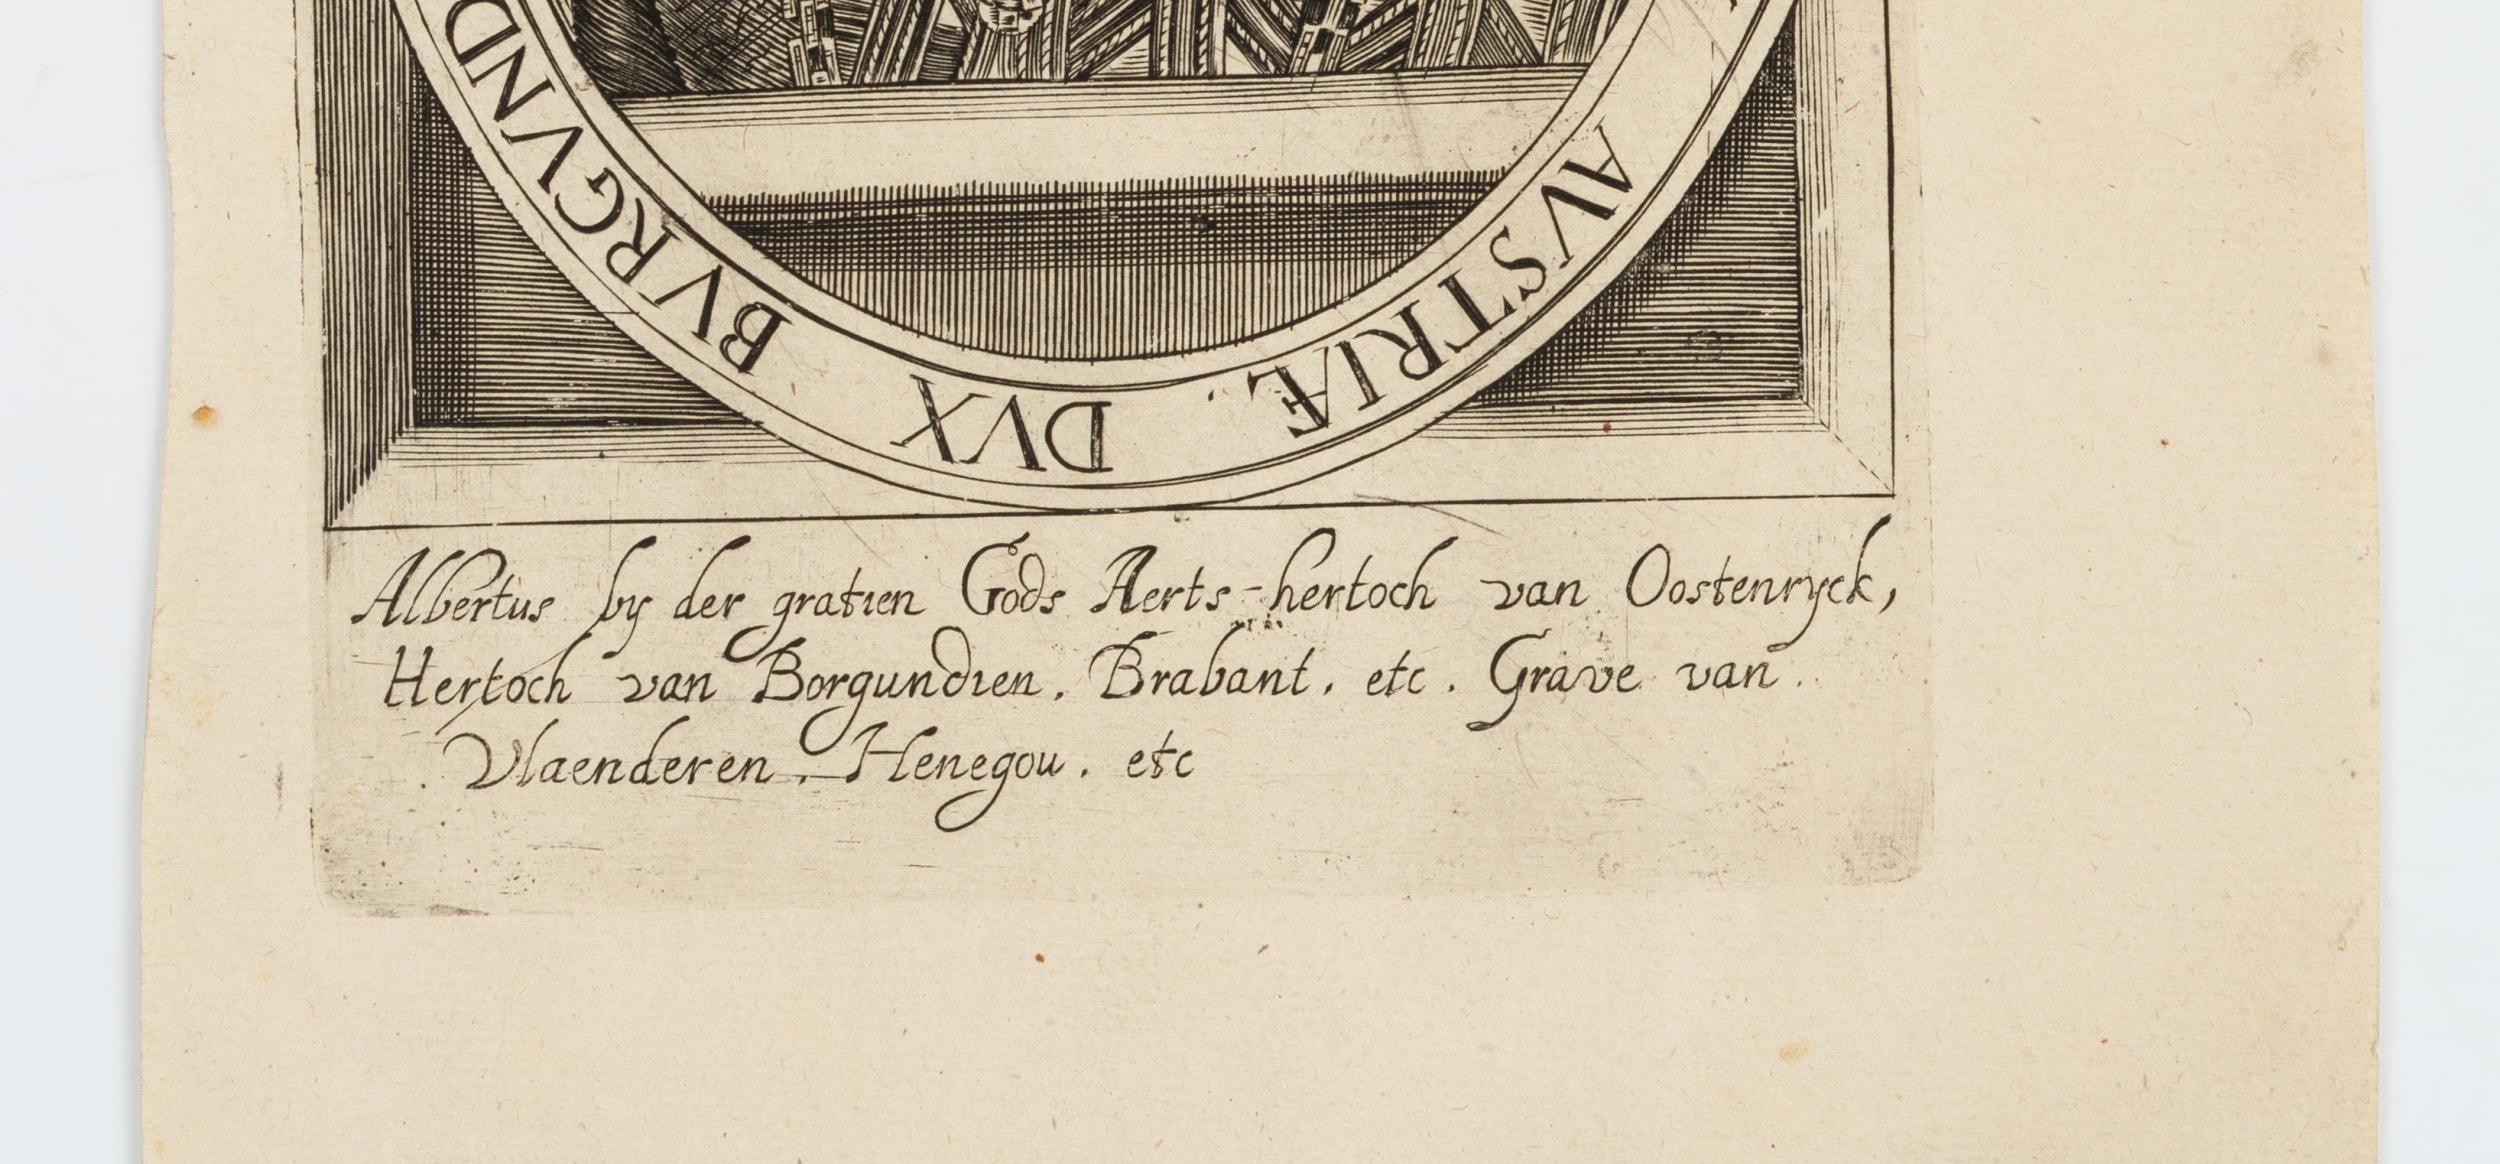 AVSTRIÆ. DVX BVRGVND
Albertus by der gratien Gods Aerts-hertoch van Oostenryck,
Hertoch van Borgundien. Brabant. etc. Grave van
Vlaenderen. Henegou. etc